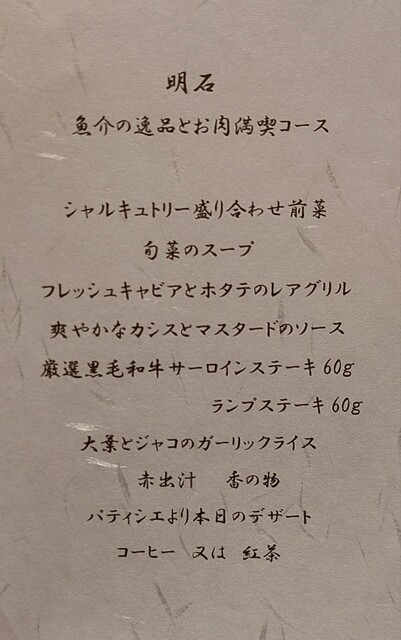 明石
魚介の逸品とお肉満喫コース
シャルキュトリー盛り合わせ前菜
旬菜のスープ
フレッシュキャビアとホタテのレアグリル
爽やかなカシスとマスタードのソース
厳選黒毛和牛サーロインステーキ 60g
ランプステーキ 60g
大葉とジャコのガーリックライス
赤出汁 香の物
パティシエより本日のデザート
コーヒー 又は 紅茶